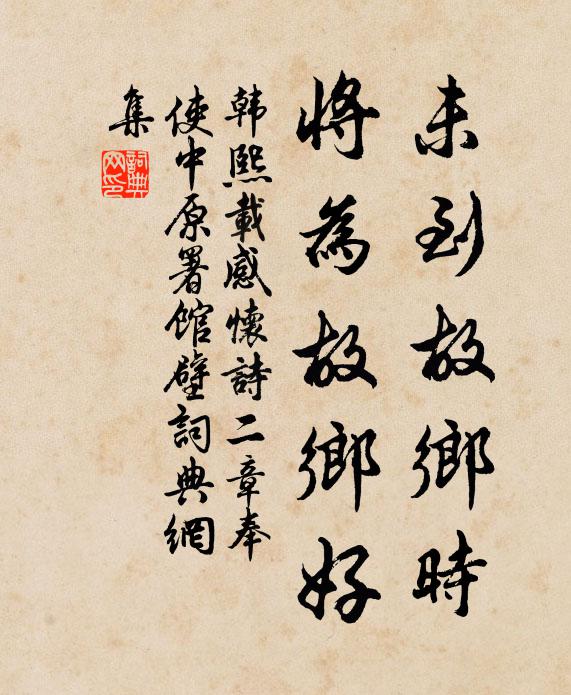 未到故鄉時
將為故鄉好
韩熙載感懷詩二章奉
使中原署馆壁詞典網
集
詞典
网印